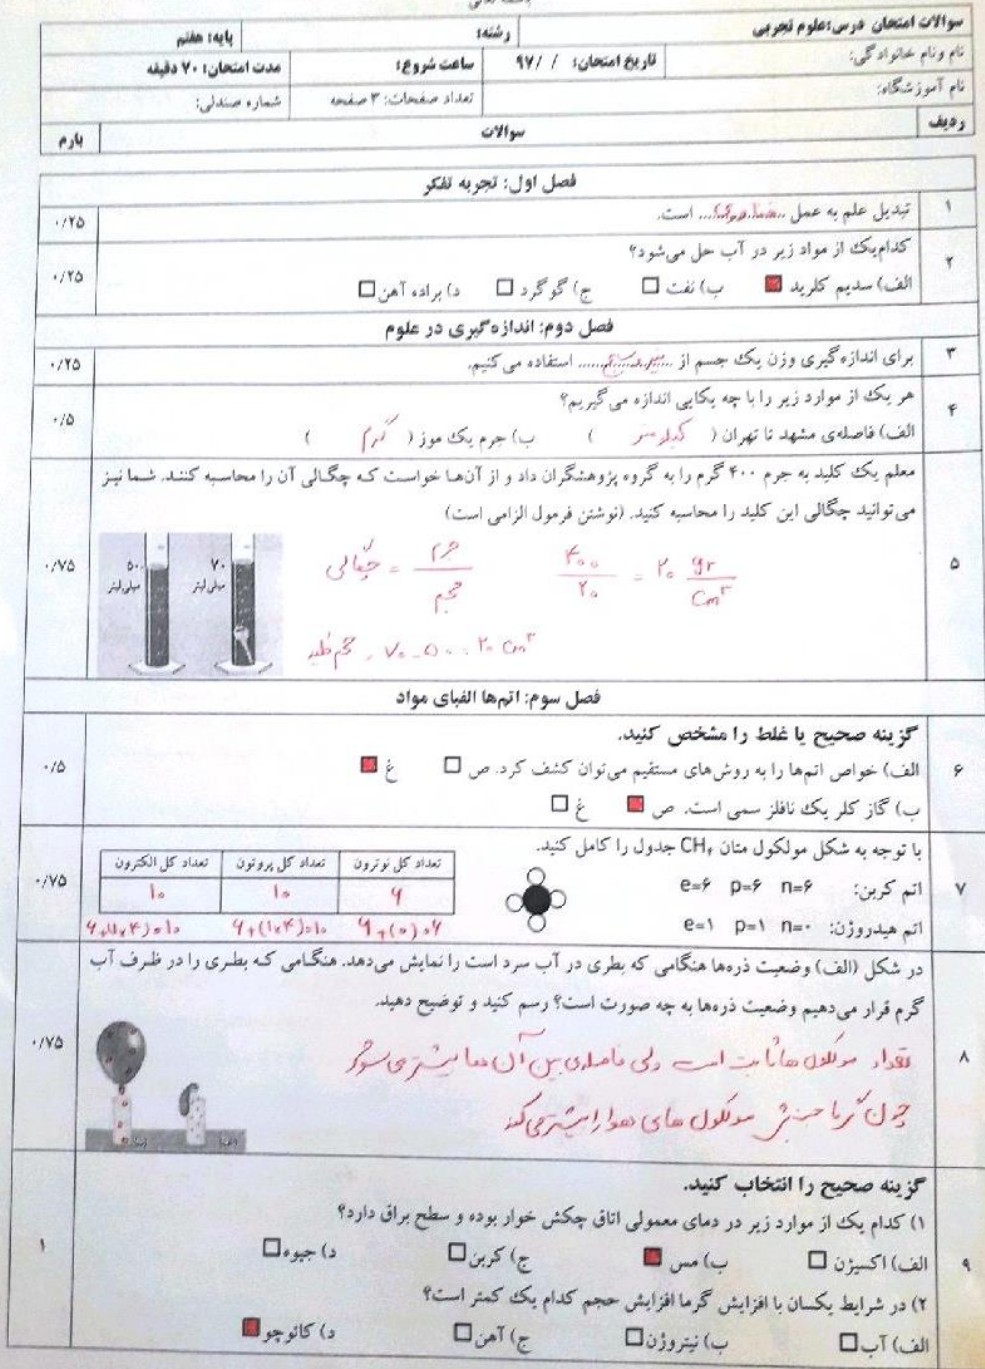 باسمه تعالی
سوالات امتحان درس:علوم تجربی رشته: پایه: هفتم
نام ونام خانوادگی: تاریخ امتحان: / /۹۷ ساعت شروع: مدت امتحان: ۷۰ دقیقه
نام آموزشگاه: تعداد صفحات: ۳ صفحه شماره صندلی:
ردیف سوالات بارم
فصل اول: تجربه تفکر
۱ تبدیل علم به عمل ...فناوری... است. ۰/۲۵
۲ کدام‌یک از مواد زیر در آب حل می‌شود؟ ۰/۲۵
الف) سدیم کلرید ب) نفت ج) گوگرد د) براده آهن
فصل دوم: اندازه‌گیری در علوم
۳ برای اندازه‌گیری وزن یک جسم از ...نیروسنج... استفاده می‌کنیم. ۰/۲۵
۴ هر یک از موارد زیر را با چه یکایی اندازه می‌گیریم؟ ۰/۵
الف) فاصله‌ی مشهد تا تهران ( کیلومتر ) ب) جرم یک موز ( گرم )
معلم یک کلید به جرم ۴۰۰ گرم را به گروه پژوهشگران داد و از آن‌ها خواست که چگالی آن را محاسبه کنند. شما نیز
می‌توانید چگالی این کلید را محاسبه کنید. (نوشتن فرمول الزامی است)
۵ چگالی = جرم / حجم ۴۰۰ / ۲۰ = ۲۰ gr / cm۳ ۰/۷۵
۵۰ میلی‌لیتر ۷۰ میلی‌لیتر
حجم کلید = ۷۰ - ۵۰ = ۲۰ cm۳
فصل سوم: اتم‌ها الفبای مواد
گزینه صحیح یا غلط را مشخص کنید.
۶ الف) خواص اتم‌ها را به روش‌های مستقیم می‌توان کشف کرد. ص غ ۰/۵
ب) گاز کلر یک نافلز سمی است. ص غ
با توجه به شکل مولکول متان CH۴ جدول را کامل کنید.
۷ اتم کربن: e=۶ p=۶ n=۶ ۰/۷۵
اتم هیدروژن: e=۱ p=۱ n=۰
تعداد کل نوترون تعداد کل پروتون تعداد کل الکترون
۶ ۱۰ ۱۰
۶+(۰)=۶ ۶+(۱×۴)=۱۰ ۶+(۱×۴)=۱۰
در شکل (الف) وضعیت ذره‌ها هنگامی که بطری در آب سرد است را نمایش می‌دهد. هنگامی که بطری را در ظرف آب
گرم قرار می‌دهیم وضعیت ذره‌ها به چه صورت است؟ رسم کنید و توضیح دهید.
۸ تعداد مولکول ها ثابت است ولی فاصله‌ی بین آن ها بیشتر می شود ۰/۷۵
چون گرما جنبش مولکول های هوا را بیشتر می کند
گزینه صحیح را انتخاب کنید.
۱) کدام یک از موارد زیر در دمای معمولی اتاق چکش خوار بوده و سطح براق دارد؟
۹ الف) اکسیژن ب) مس ج) کربن د) جیوه ۱
۲) در شرایط یکسان با افزایش گرما افزایش حجم کدام یک کمتر است؟
الف) آب ب) نیتروژن ج) آهن د) کائوچو